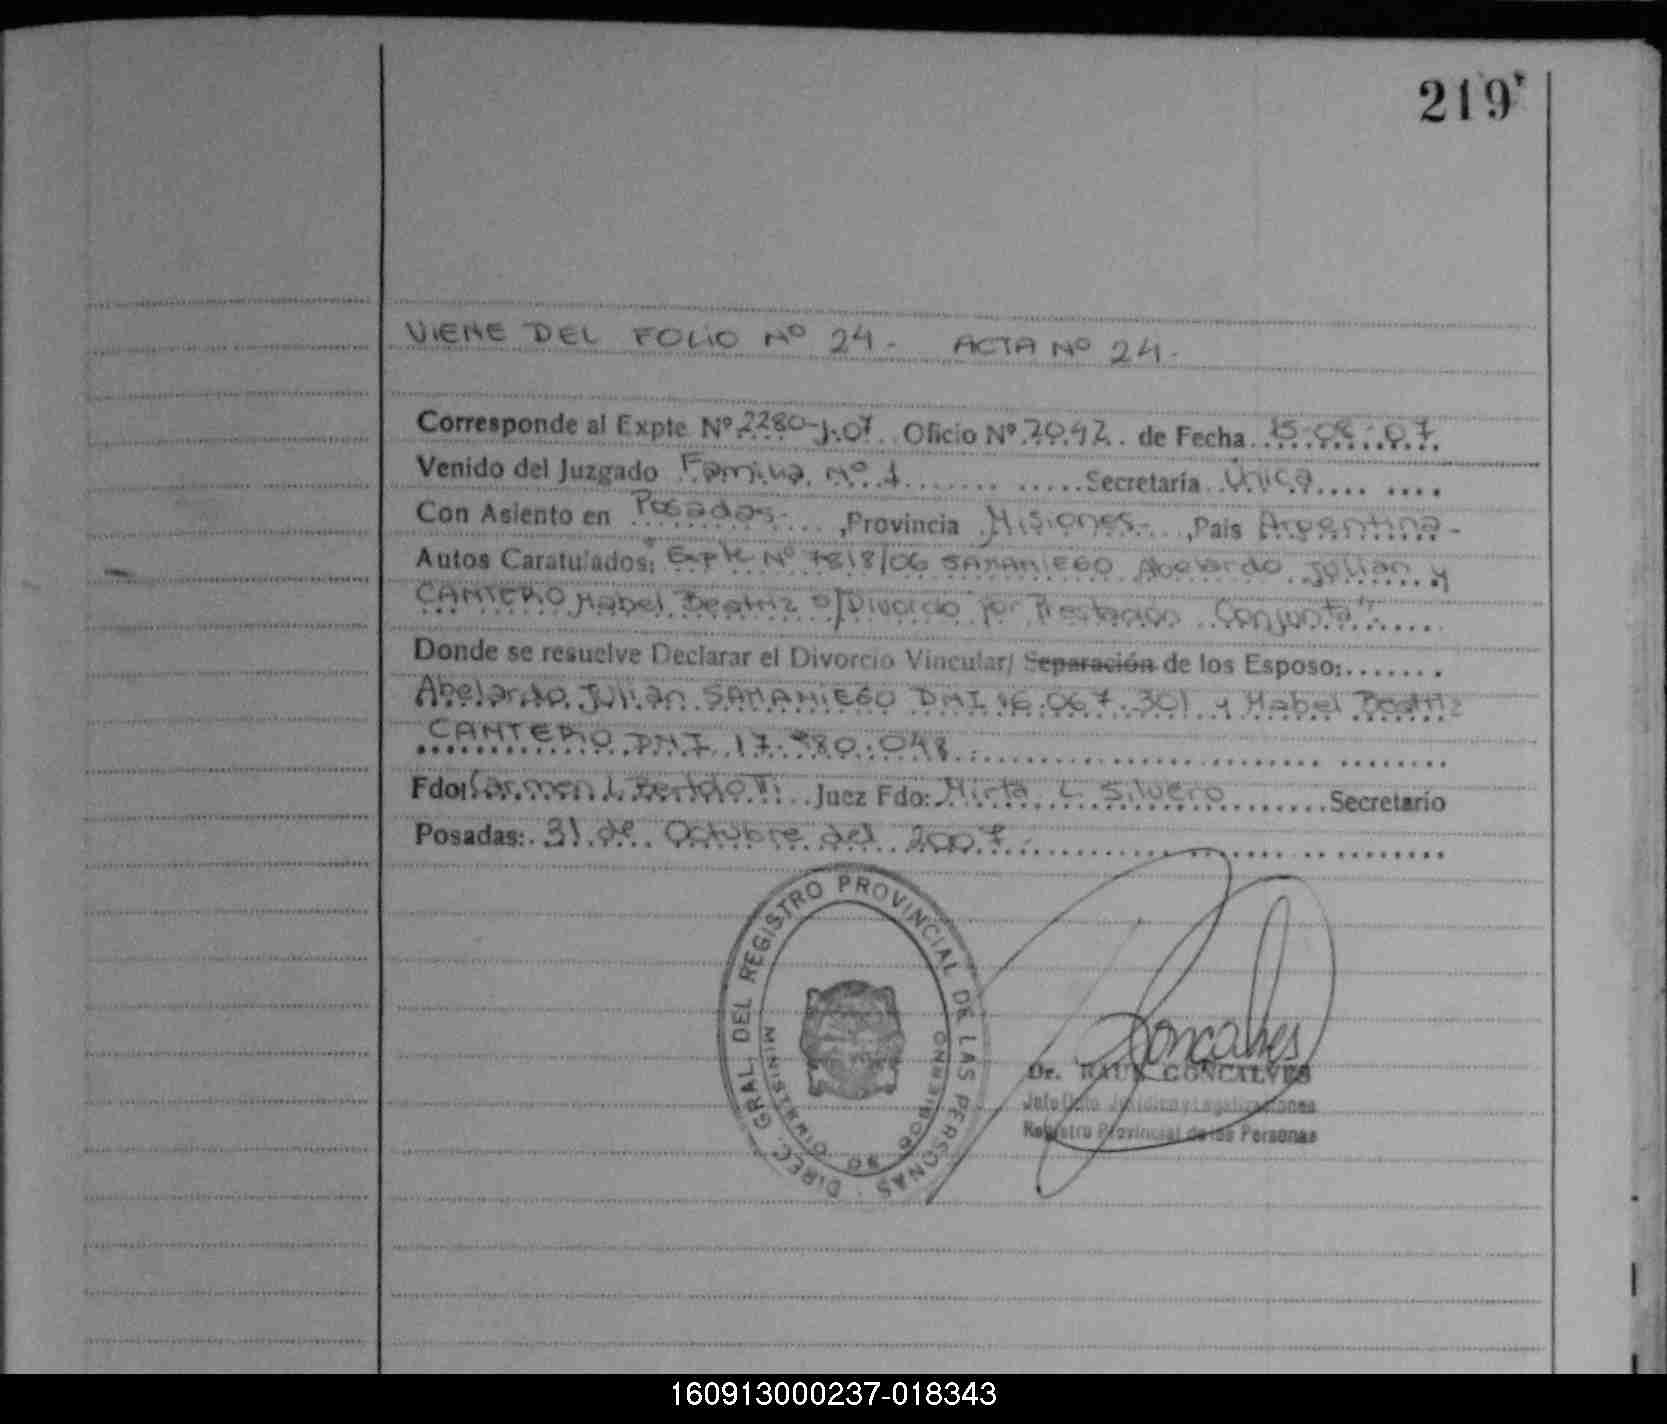 219
VIENE DEL FOLIO Nº 24. ACTA Nº 24.
Corresponde al Expte Nº 2280-J-07 Oficio Nº 2042 de Fecha 15-08-07
Venido del Juzgado Familia Nº 1 Secretaría Única
Con Asiento en Posadas- ,Provincia Misiones- ,País Argentina-
Autos Caratulados: "Expte Nº 7818/06 SAMANIEGO Abelardo Julian y
CANTERO Mabel Beatriz s/Divorcio por Presentación Conjunta"
Donde se resuelve Declarar el Divorcio Vincular/ Separación de los Esposo:
Abelardo Julian SAMANIEGO DNI 16.067.301 y Mabel Beatriz
CANTERO DNI 17.980.048
Fdo: Carmen L. Bertolotti Juez Fdo: Mirta L Silvero Secretario
Posadas: 31 de Octubre del 2007.
DIREC. GRAL. DEL REGISTRO PROVINCIAL DE LAS PERSONAS
MINISTERIO DE GOBIERNO
Goncalves
Dr. RAUL GONCALVES
Jefe Dpto Jurídico y Legalizaciones
Registro Provincial de las Personas
160913000237-018343